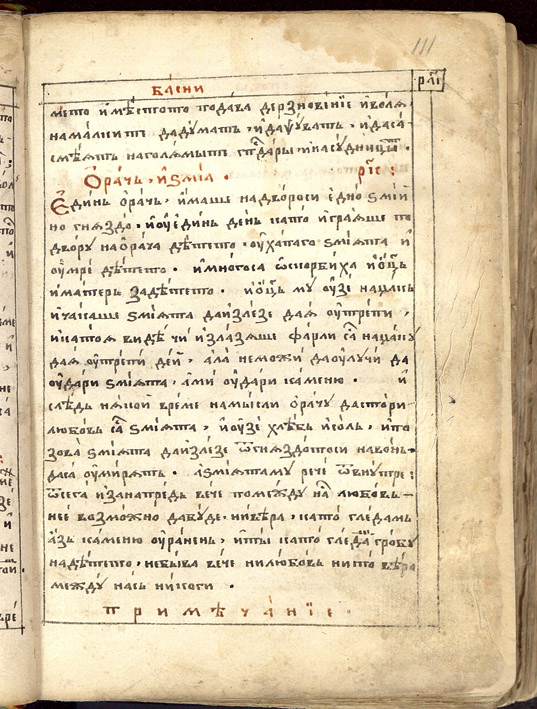 111
басни
раі
мето имѣстото подава дерзновенїе иволѧ,
намалкитѣ дадꙋматъ, идаꙋꙋватъ, идаса
смѣѧтъ наголѧмытѣ гпⷭ҇дары, инасꙋдницыт
Ѻрачь, иѕмїа. рі҃с:
Единь ѻрачь, имаше надвороси едно ѕмїй
но гнѧздо. иоуединь день като играꙗше по
дворꙋ наорача дѣтето. оухапаго ѕмїѧта и
оумре дѣтето. имногоса ѡскорбиха иоц҃ъ
иматерь задѣтето. иоц҃ъ мꙋ оузе нацѧкъ
ичакаше ѕмїѧта даизлезе даѧ оутрепи,
икатоѧ видѣ чи излазѧше фарли са нацакꙋ
даѧ оутрепи дей, ала неможи даоулꙋчи да
оудари ѕмїѧта, ами оудари каменю. и
слѣдь нѧкой време намысли ѻрачꙋ дастори
любовь са ѕмїѧта, иоузе хлѣбь исоль, ипо
зова ѕмїѧта даизлезе ѿгнѧздотоси навонь
даса оумирѧтъ. аѕмїѧтамꙋ рече ѿвнꙋтре:
ѿсега изанапредь вече помеждꙋ на любовь
нее возможно дабꙋде. нивѣра, като гледамь
азь каменю оуранень, иты като гледашь гробꙋ
надѣтето, небыва вече нилюбовь нито вѣра
междꙋ нась никоги.
примѣчанїе.